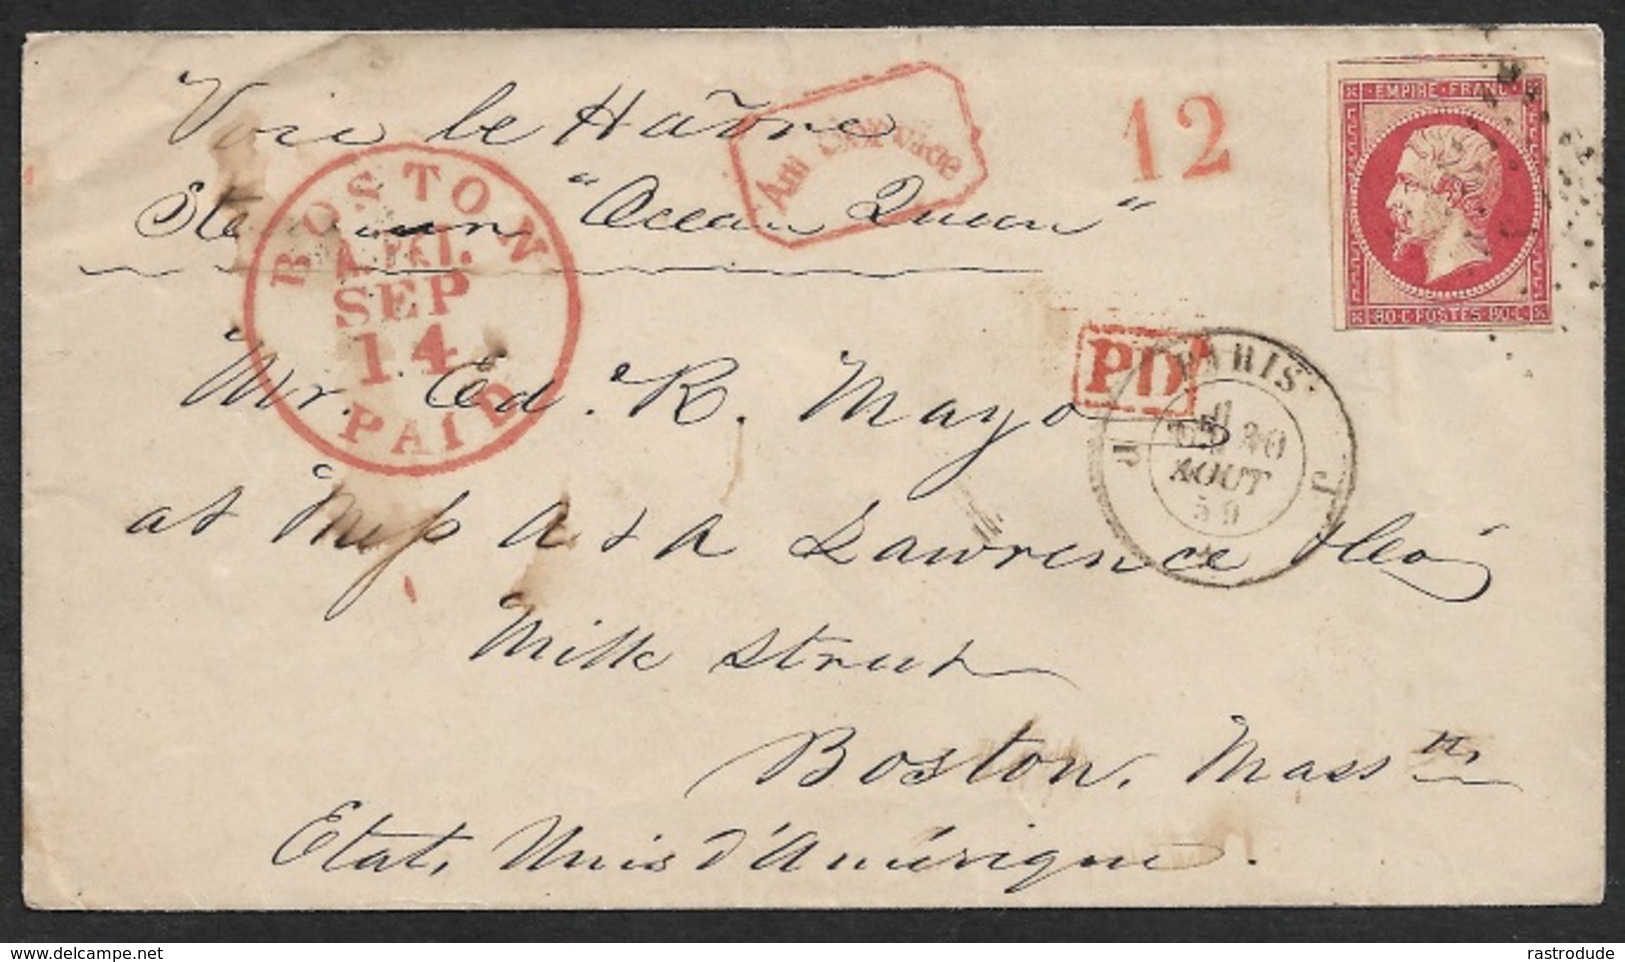 Voie le Havre
Steamer "Ocean Queen"
Au Service
12
EMPIRE FRANC
80 C POSTES 80 C
BOSTON
SEP
14
PAID
PD
PARIS
AOUT
59
J
Mr. Ed. R. Mayo
at Mess A & A Lawrence & Co
Milk Street
Boston, Masstts
Etats Unis d'Amérique.
rastrodude